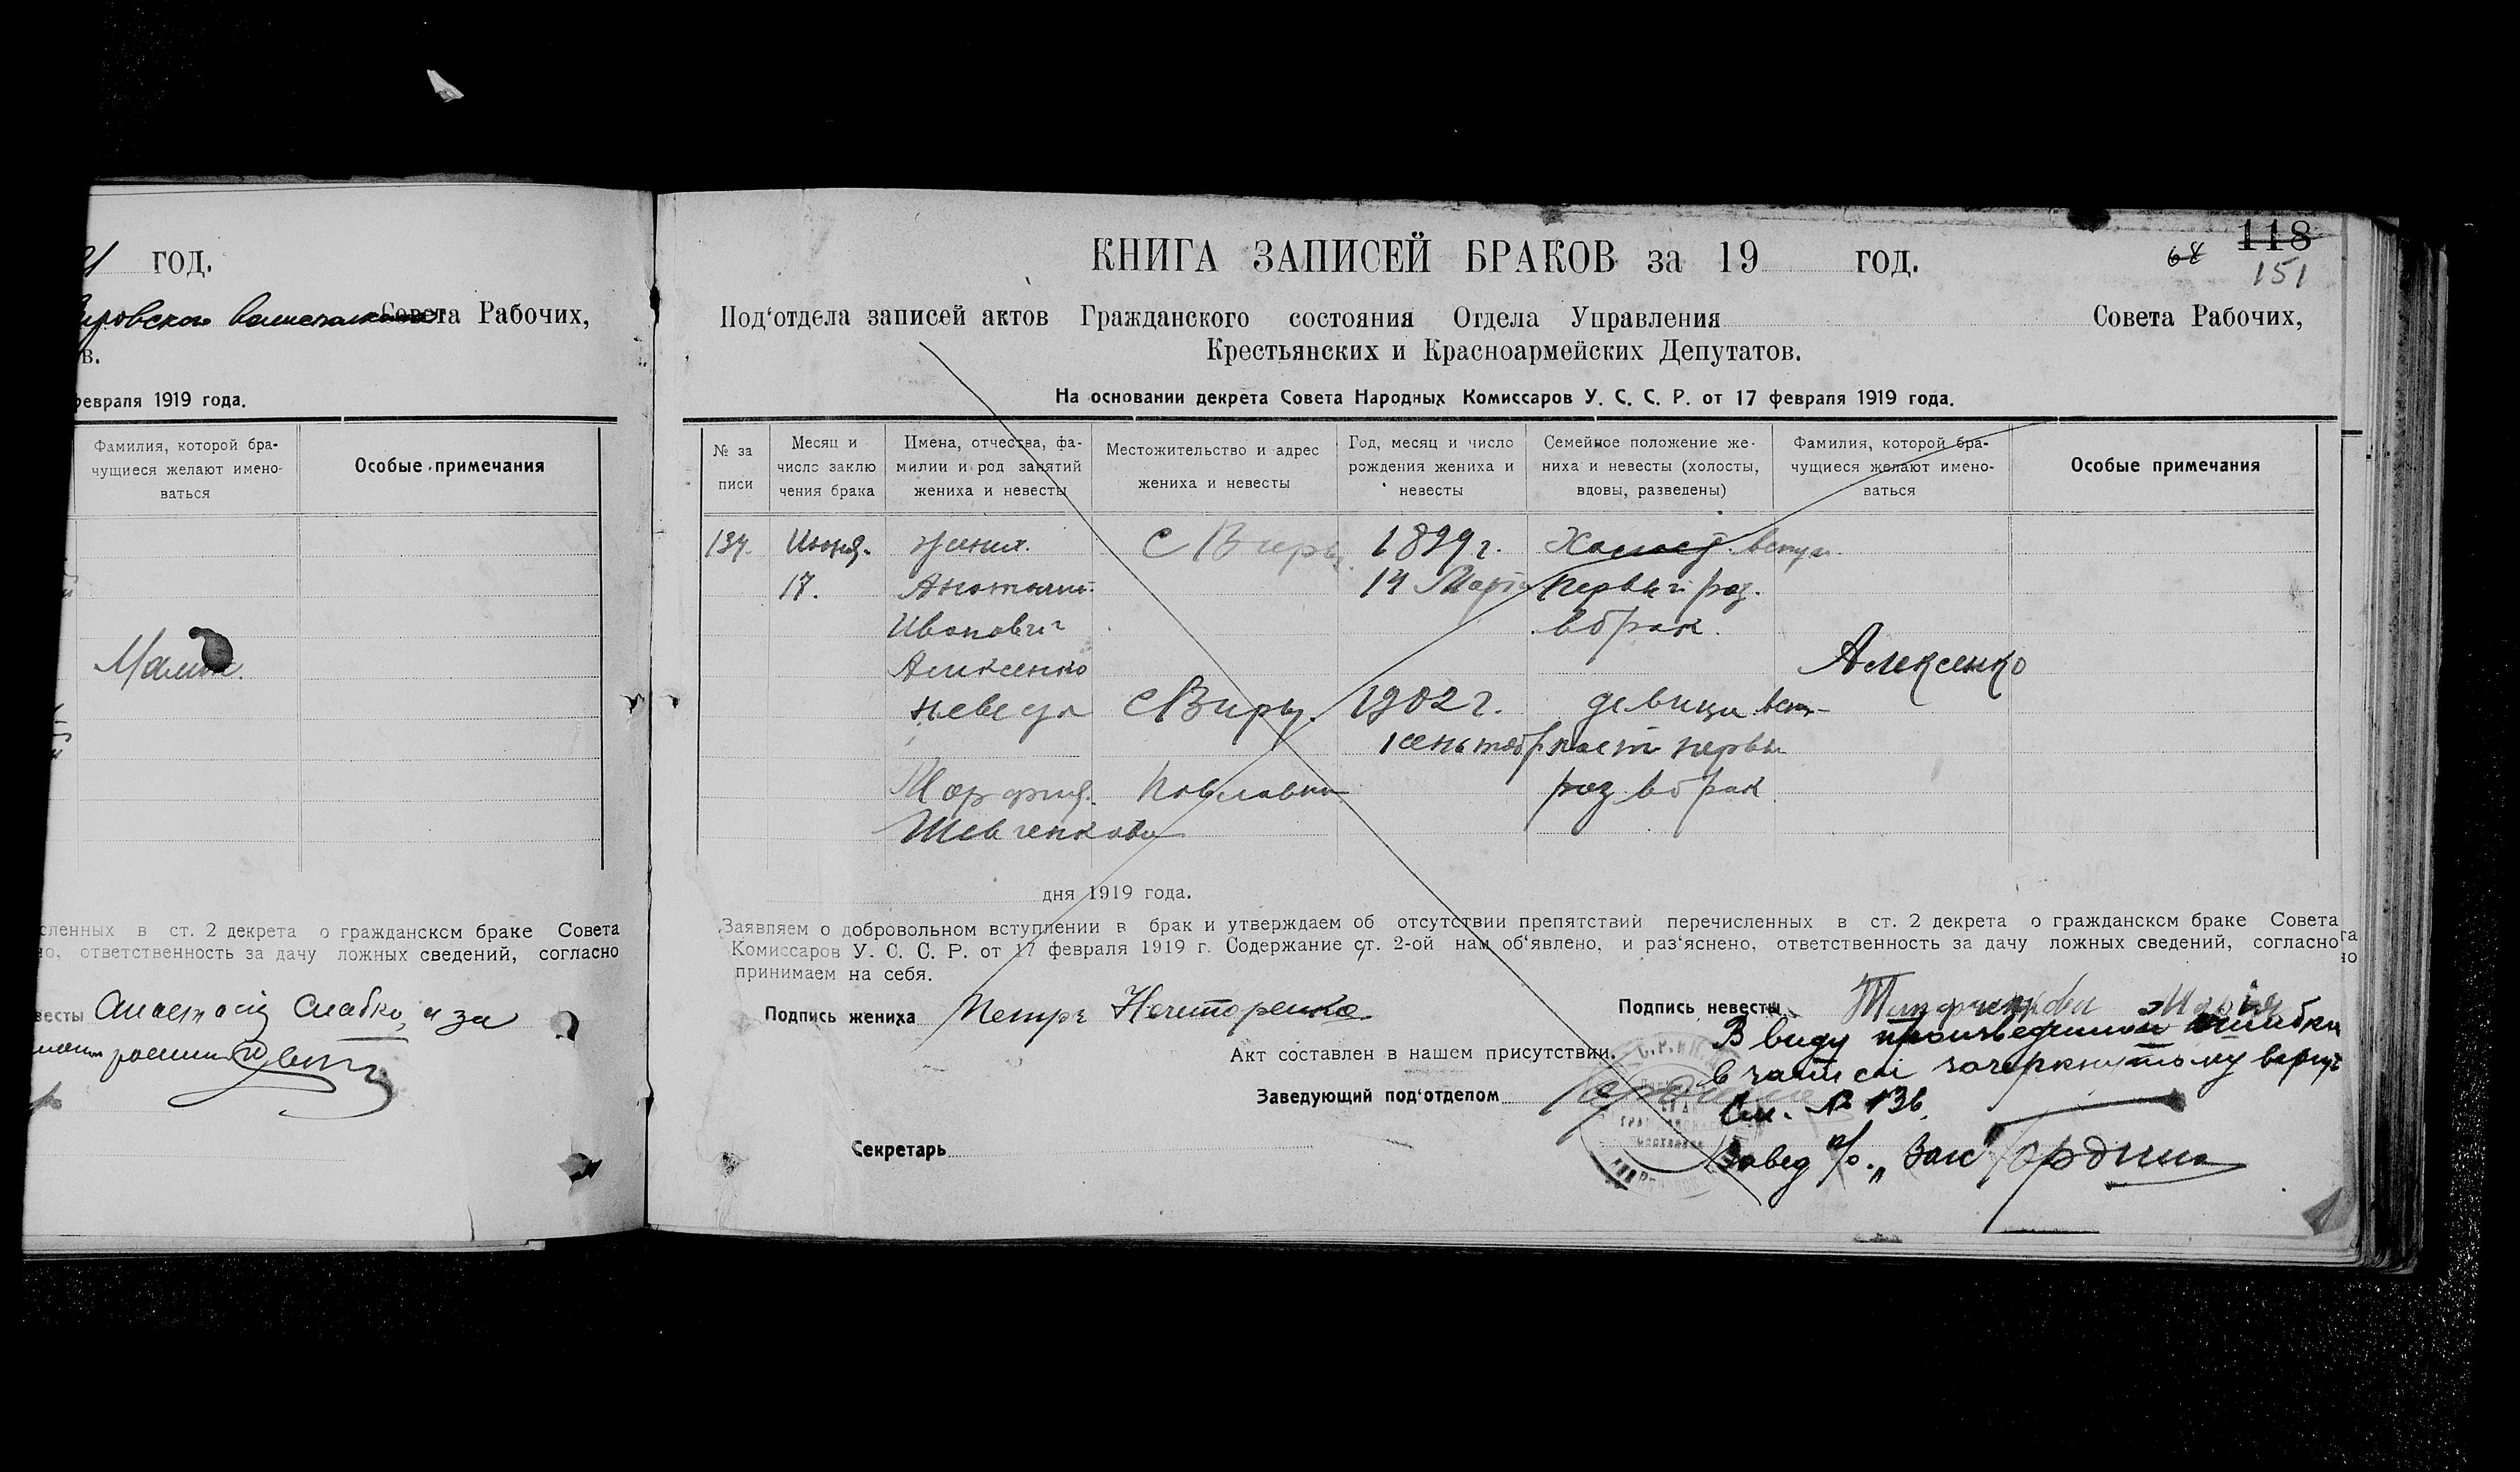 год.
Совета Рабочих,
в.
февраля 1919 года.
Фамилия, которой бра-
чущиеся желают имено-
ваться
Особые примечания
сленных в ст. 2 декрета о гражданском браке Совета
но, ответственность за дачу ложных сведений, согласно
весты Слабко, а за
КНИГА ЗАПИСЕЙ БРАКОВ за 19 год.
68 118
151
Под'отдела записей актов Гражданского состояния Отдела Управления Совета Рабочих,
Крестьянских и Красноармейских Депутатов.
На основании декрета Совета Народных Комиссаров У. С. С. Р. от 17 февраля 1919 года.
№ за
писи
Месяц и
число заклю
чения брака
Имена, отчества, фа-
милии и род занятий
жениха и невесты
Местожительство и адрес
жениха и невесты
Год, месяц и число
рождения жениха и
невесты
Семейное положение же-
ниха и невесты (холосты,
вдовы, разведены)
Фамилия, которой бра-
чущиеся желают имено-
ваться
Особые примечания
Июня. жених. с Виры. 1899 г. Холост. вступ
17. 14 Марта первый раз.
Иванович в брак.
Алексенко Алексенко
невеста с Виры. 1902 г. девица
1 сентября первы
Павловна раз в брак
Шевченкова
дня 1919 года.
Заявляем о добровольном вступлении в брак и утверждаем об отсутствии препятствий перечисленных в ст. 2 декрета о гражданском браке Совета
Комиссаров У. С. С. Р. от 17 февраля 1919 г. Содержание ст. 2-ой нам об'явлено, и раз'яснено, ответственность за дачу ложных сведений, согласно
принимаем на себя.
Подпись жениха Петр Нечипоренко
Подпись невесты
В виду произведенной ошибки
Акт составлен в нашем присутствии.
в записи зачеркнутому
Заведующий под'отделом
См. № 136
Секретарь
Завед п/о. „Заг Гордина